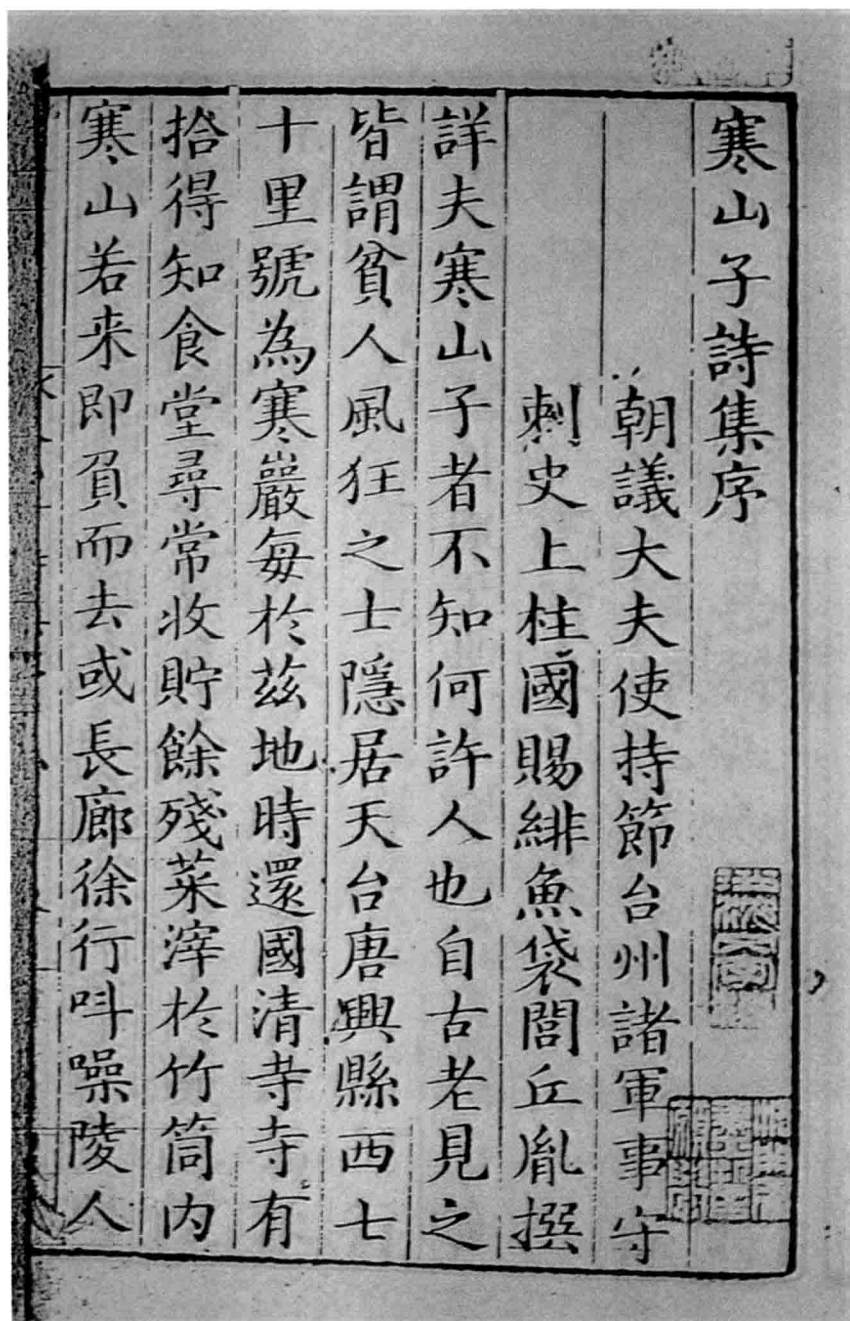 寒山子詩集序
朝議大夫使持節台州諸軍事守
刺史上柱國賜緋魚袋閭丘胤撰
詳夫寒山子者不知何許人也自古老見之
皆謂貧人風狂之士隱居天台唐興縣西七
十里號為寒巖每於茲地時還國清寺寺有
拾得知食堂尋常收貯餘殘菜滓於竹筒内
寒山若来即負而去或長廊徐行叫噪陵人